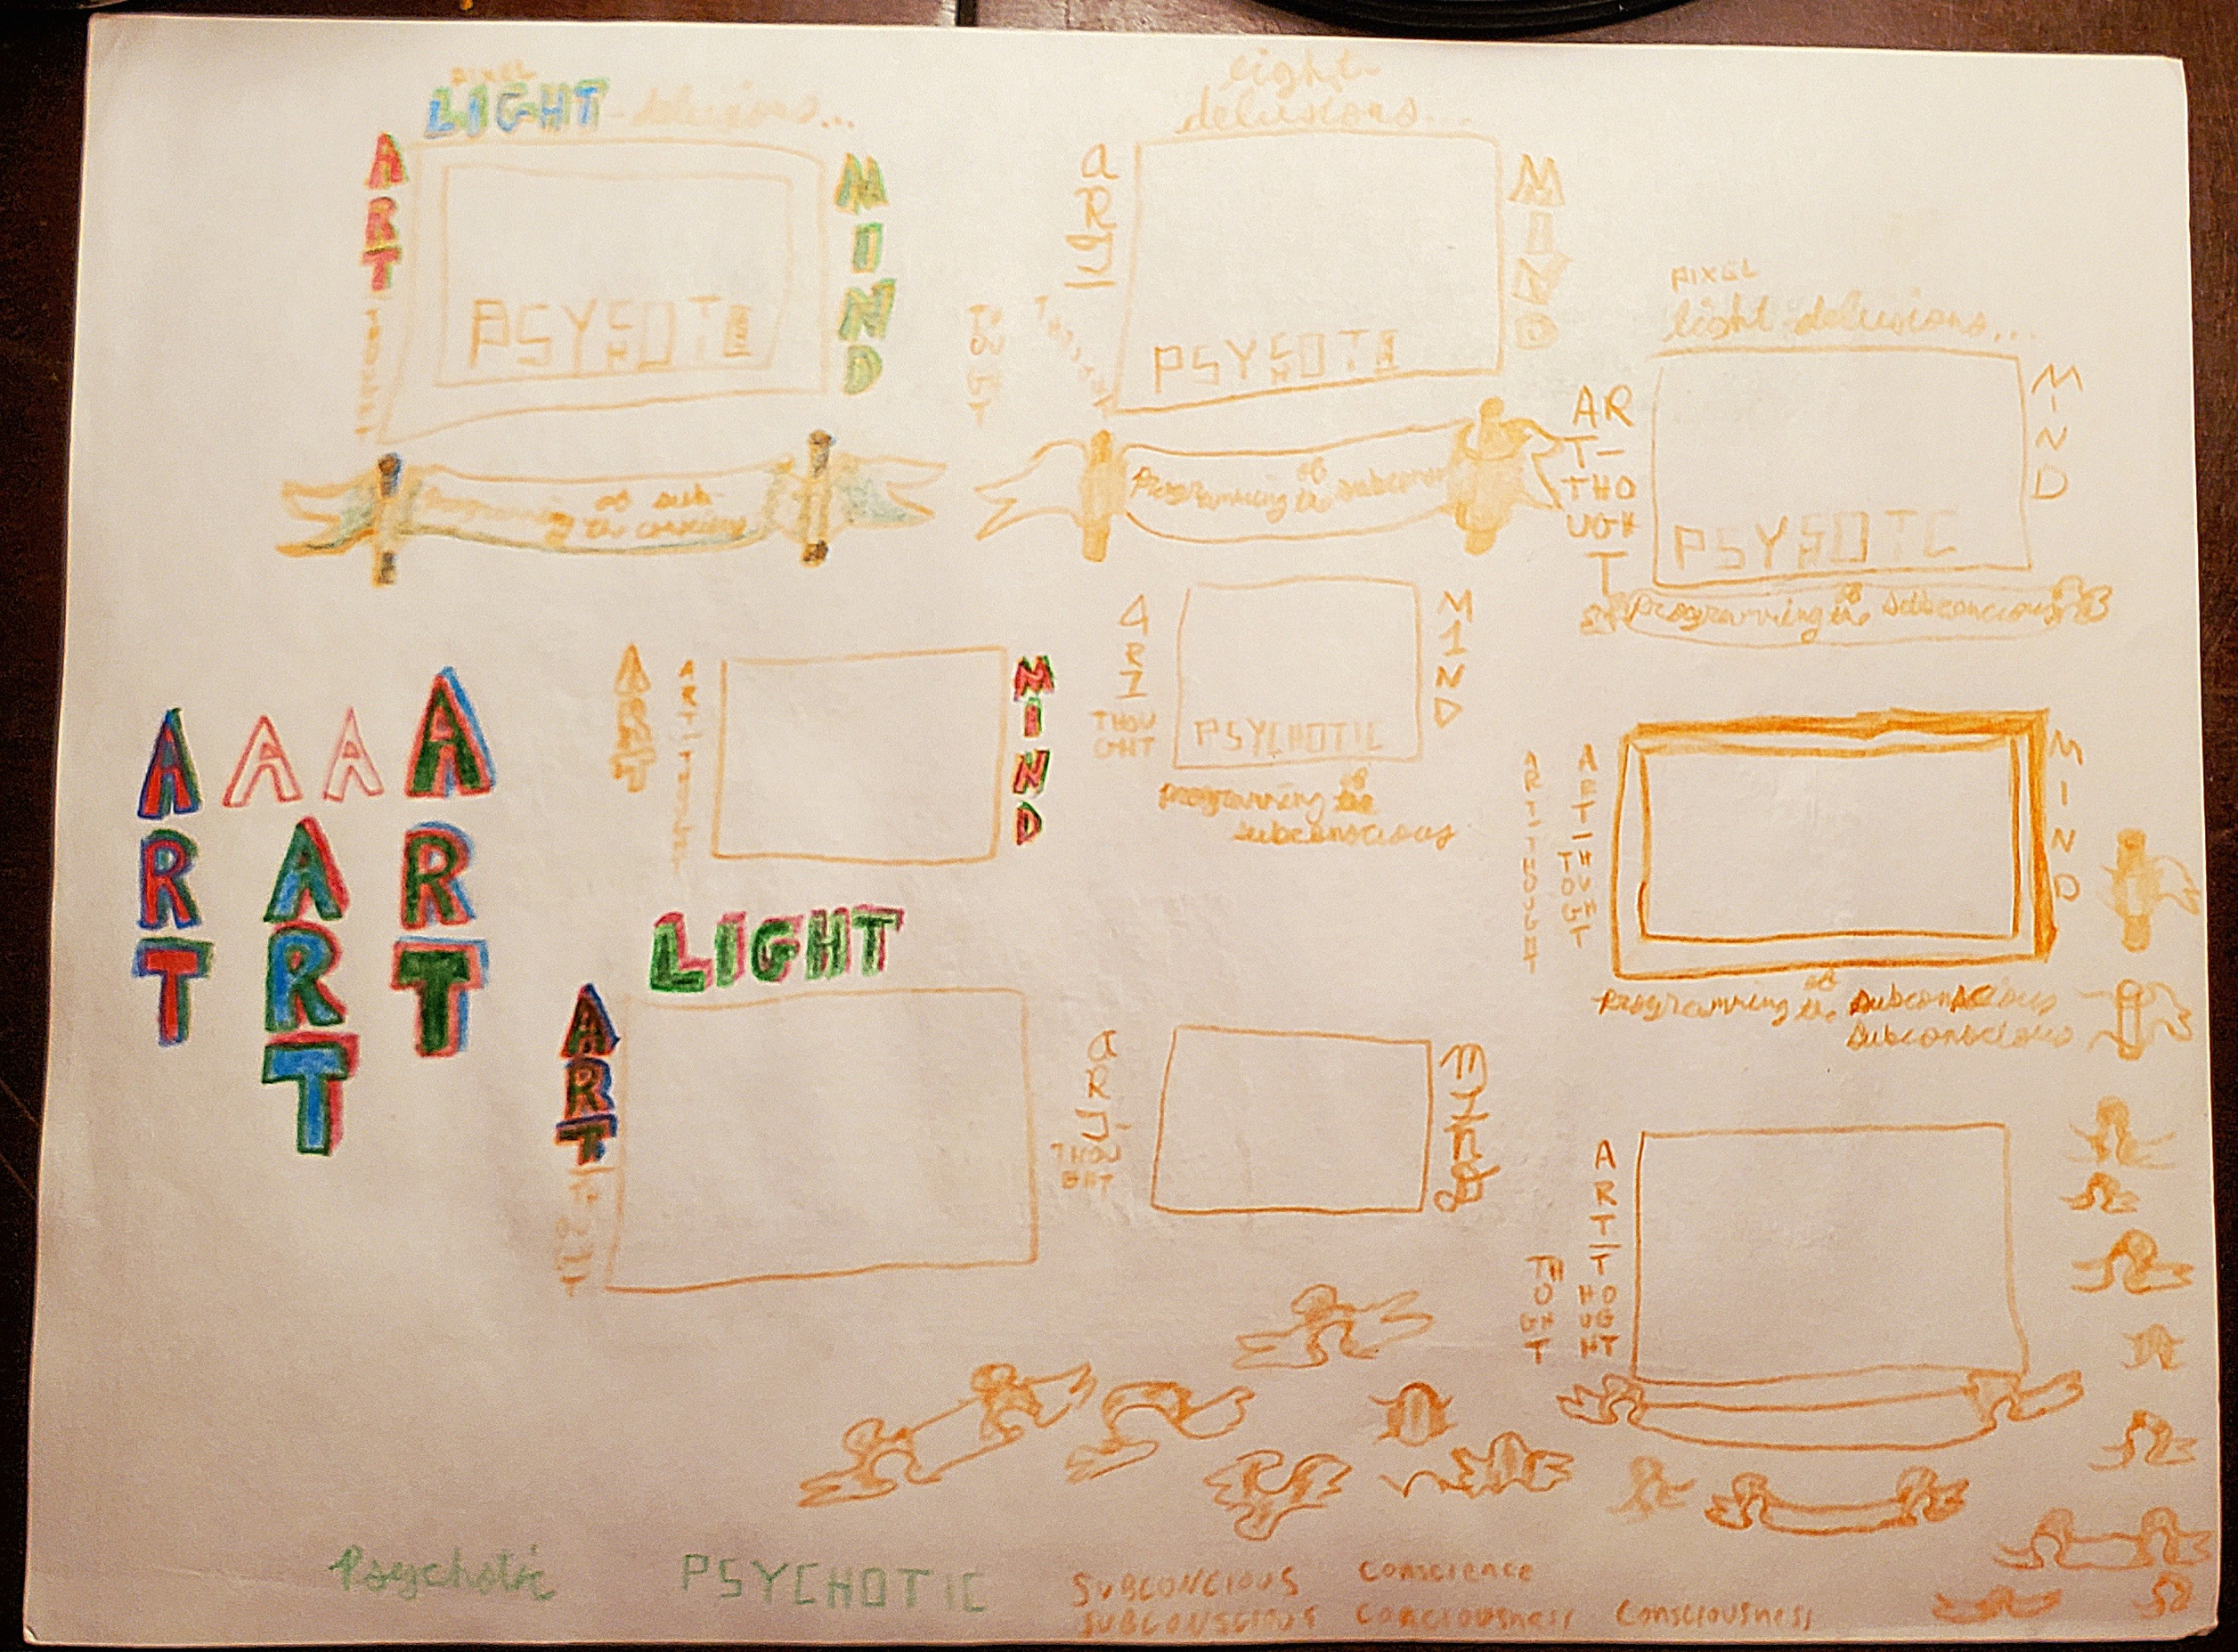 PIXEL
LIGHT-delusions...
ART
MIND
light-
delusions...
aRT
THOUGHT
MIND
PSYCHOTIC
PIXEL
light-delusions...
ART-THOUGHT
MIND
PSYCHOTIC
Programming of the
Programming of the
Programming of the subconcious
ART
ART
MIND
ART
THOU
GHT
MIND
PSYCHOTIC
programming of the
subconscious
A A A A
RT
ART
RT
ART-THOUGHT
ART-THOUGHT
MIND
programming of the subconscious
subconscious
LIGHT
ART
aRT
THOU
GHT
MIND
ART-THOUGHT
THOUGHT
Psychotic
PSYCHOTIC
SUBCONCIOUS
conscience
SUBCONSCIOUS
conciousness
consciousness